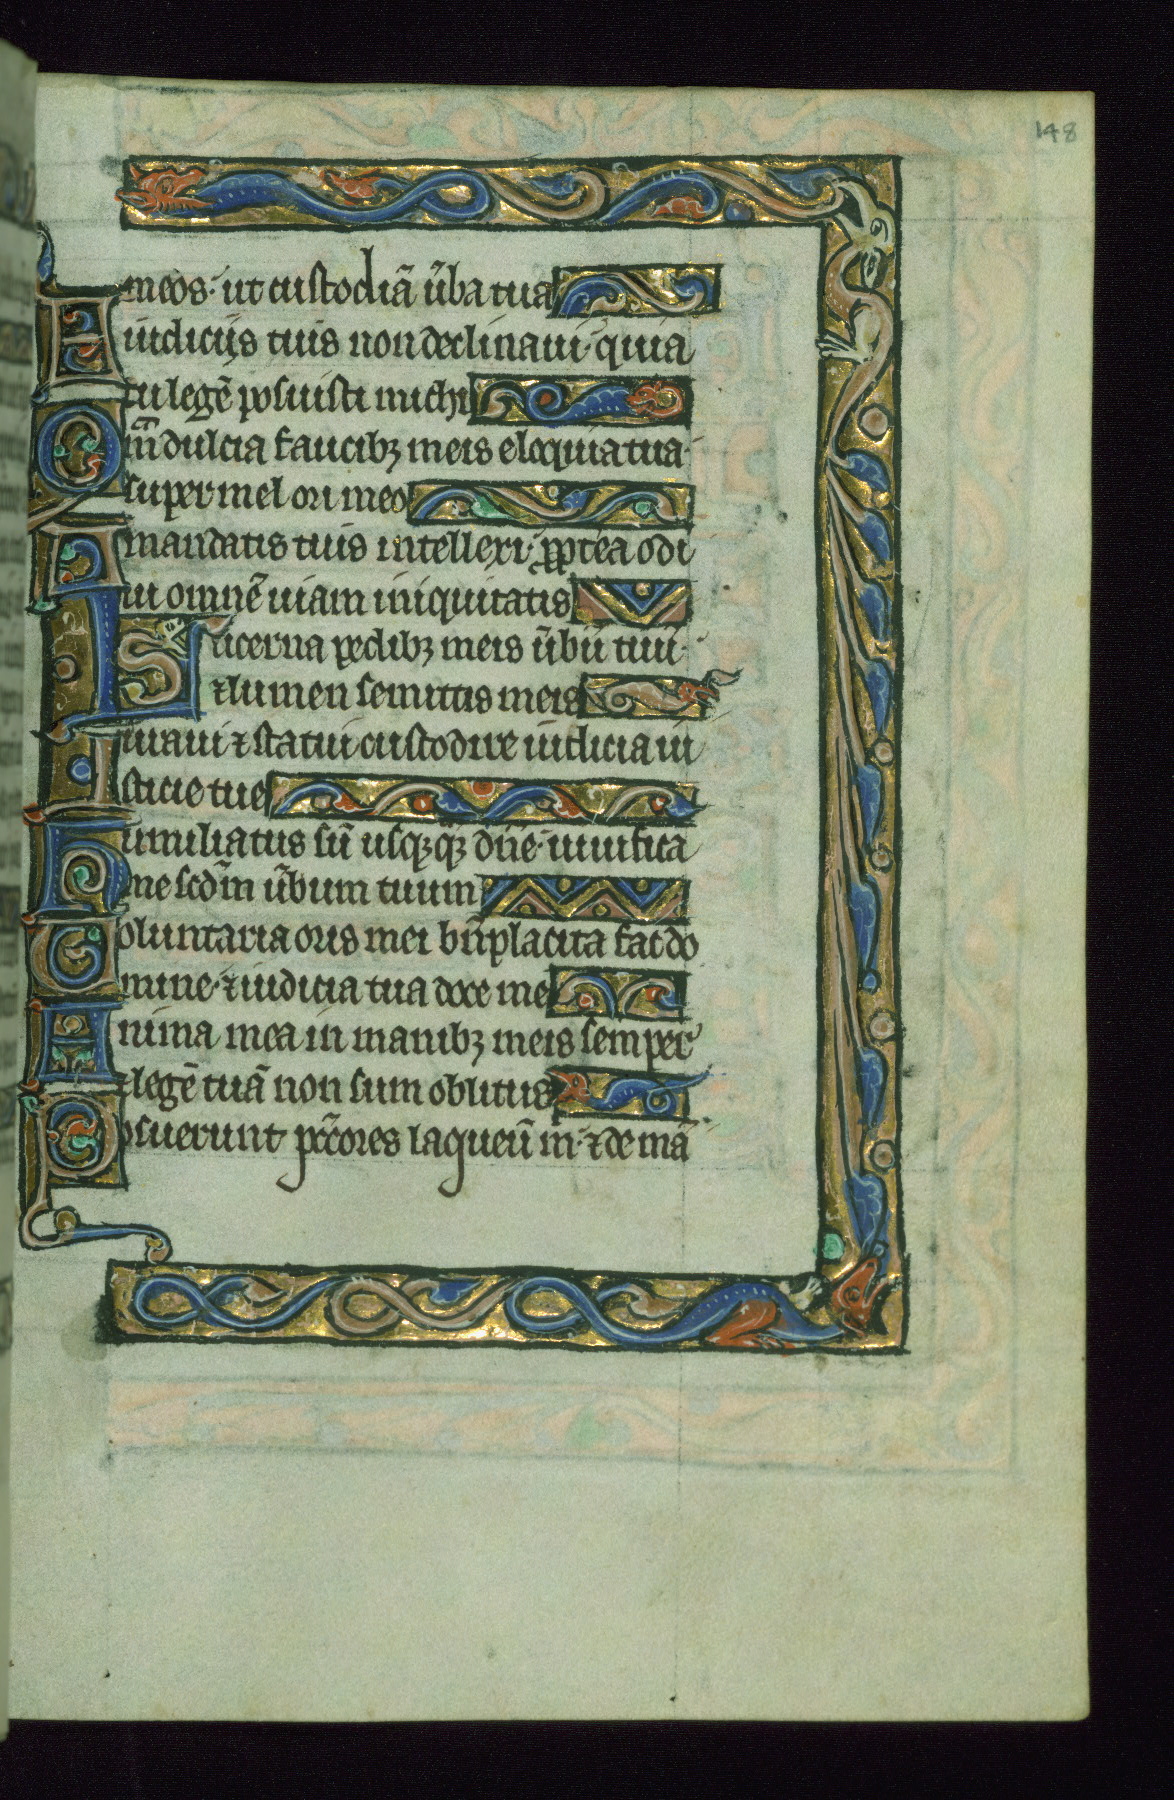 148
meos· ut custodiã ũba tua
A iudiciis tuis non declinaui· quia
tu legẽ posuisti michi
Q̃m dulcia faucibꝫ meis eloquia tua·
super mel ori meo
A mandatis tuis intellexi· ꝓpt̃ea odi
ui omnẽ uiam iniquitatis
Lucerna pedibꝫ meis ũbũ tuũ·
⁊ lumen semitis meis
Iuraui ⁊ statui custodire iudicia iu
sticie tue
Humiliatus sũ usqꝫ qꝫ dñe· uiuifica
me scd̃m ũbum tuum
Voluntaria oris mei bñplacita fac do
mine· ⁊ iudicia tua doce me
Anima mea in manibꝫ meis semper
⁊ legẽ tuã non sum oblitus
Posuerunt pc̃cores laqueũ m̃· ⁊ de mã